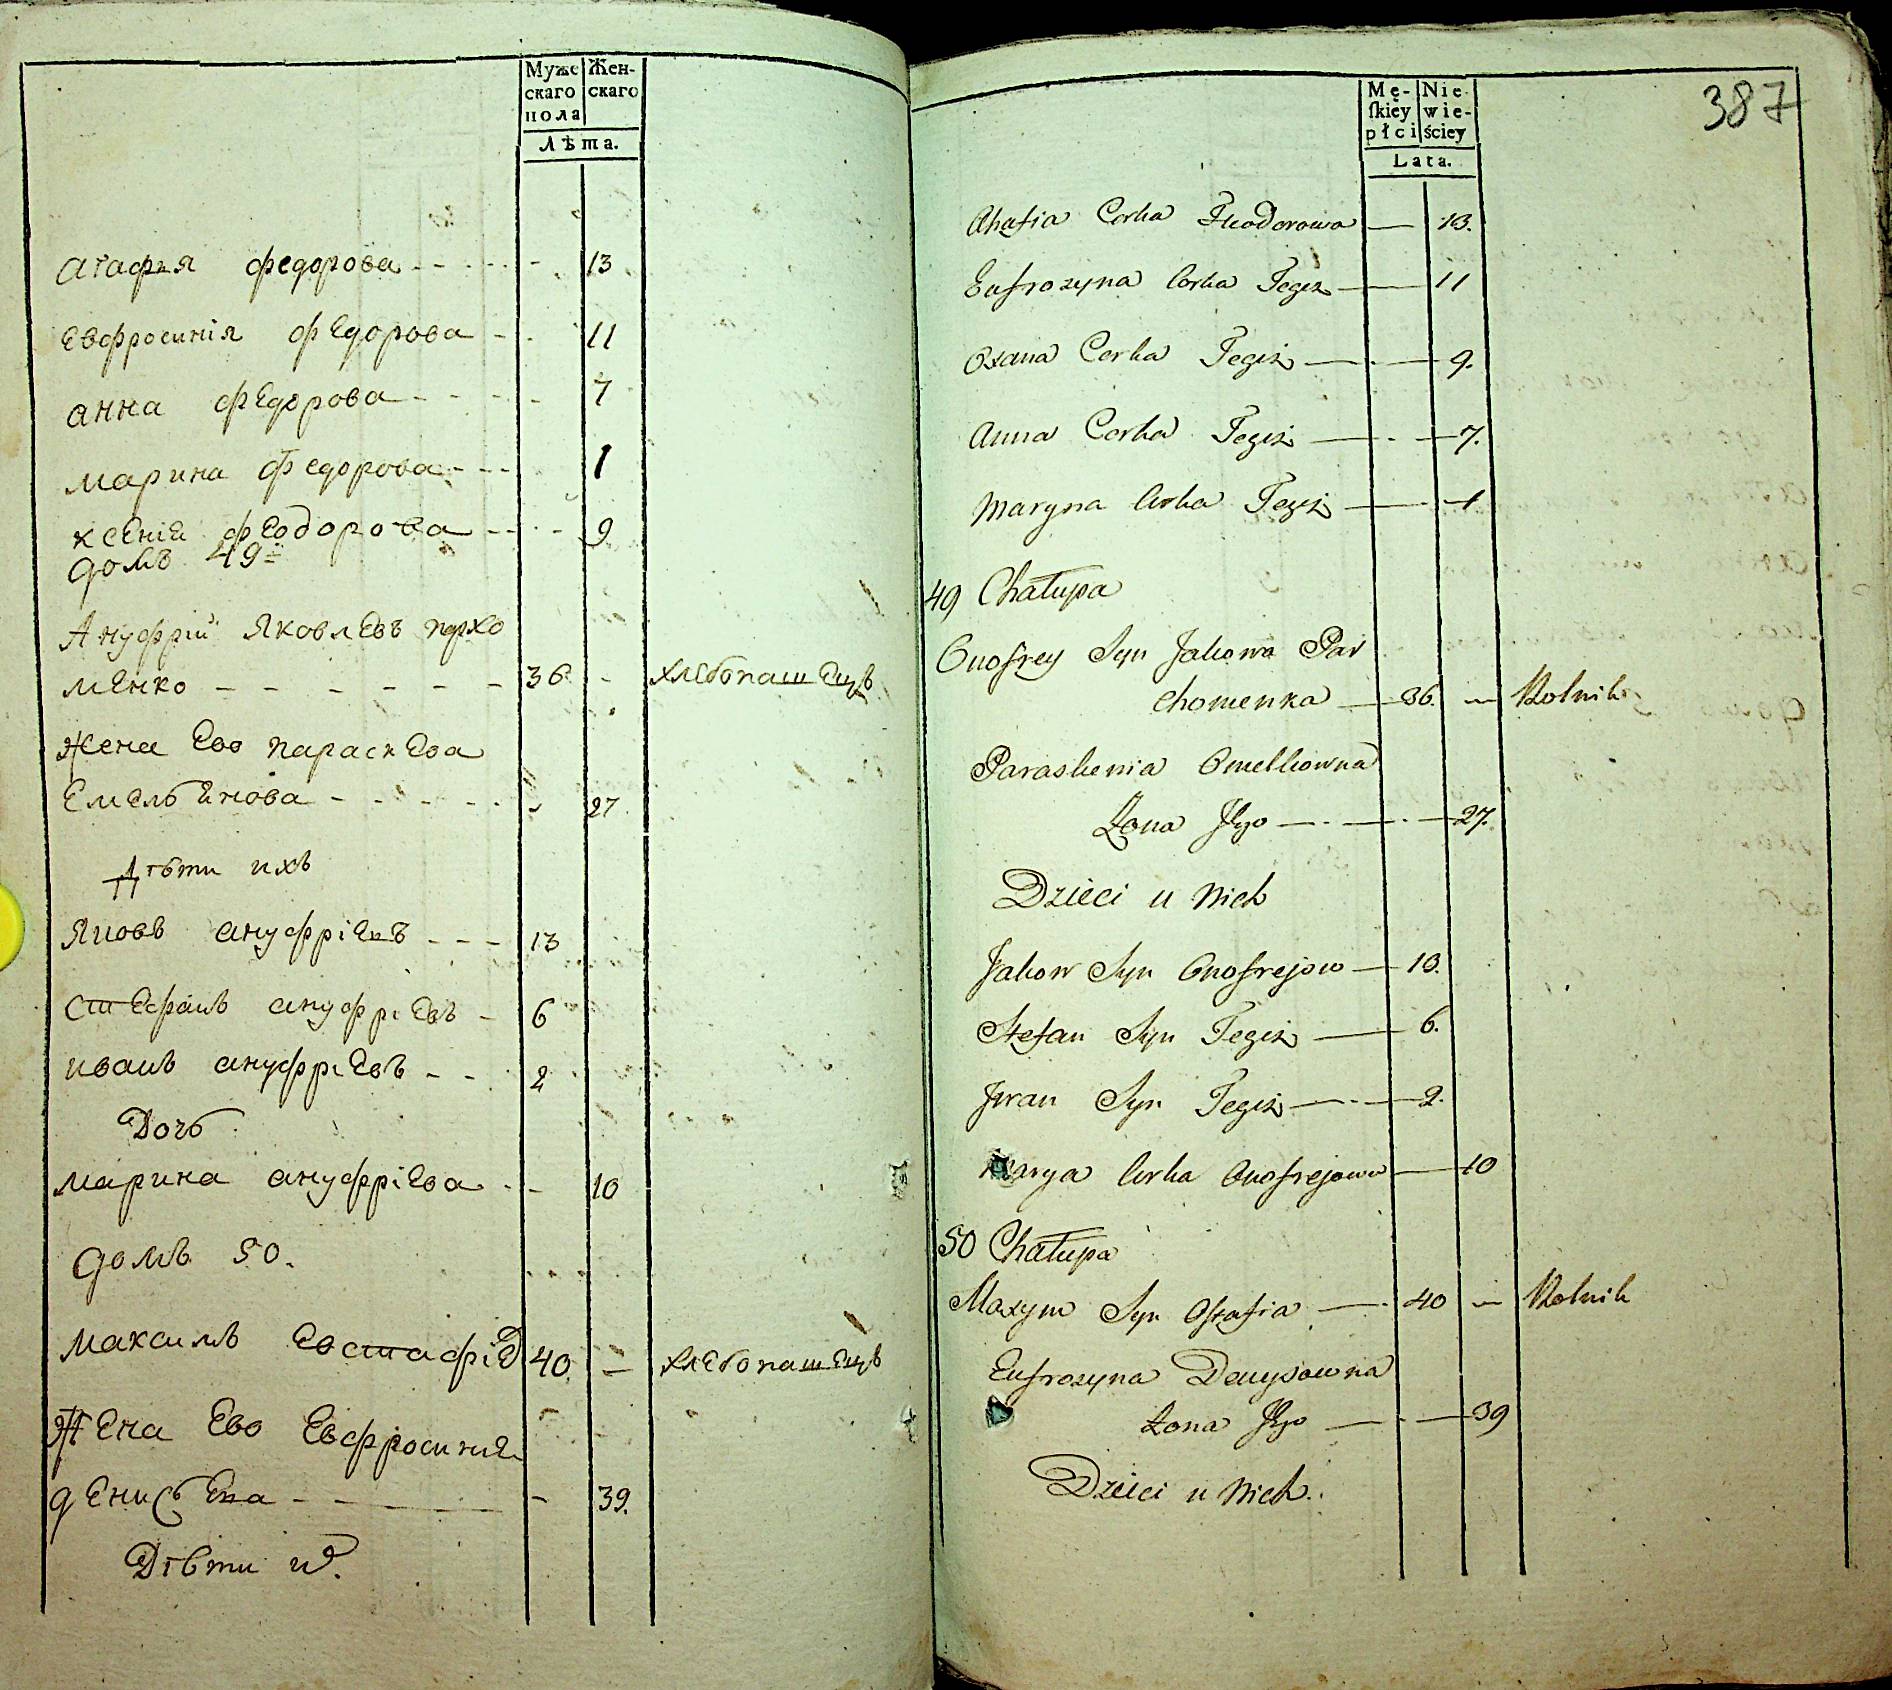 Муже
скаго
пола
Жен-
скаго
Лѣта.
Агафья федорова - - - - - 13
Евфросинiя федорова - - 11
анна федорова - - - - - 7
марина Федорова - - - 1
ксенiя феодорова - - - - 9
домъ 49й
Ануфрiй Яковлевъ пархо
менко - - - - - - 36 - хлебопашецъ
Жена Ево параскева
Емельянова - - - - - - 27
Дѣти ихъ
Яковъ ануфрiевъ - - - 13
стефанъ ануфрiевъ - 6
иванъ ануфрiевъ - - 2
Дочь
марина ануфрiева - - 10
домъ 50.
максимъ Евстафiе 40. - хлебопашецъ
Жена Ево Евфросиния
денисьева - - - - 39.
Дѣти и
387
Mę-
ſkiey
płci
Nie
wie-
ściey
Lata.
Ahafia Corka Fteodorowa — 13.
Eufrozyna Corka Tegiż — 11
Oxana Corka Tegiż — 9.
Anna Corka Tegiż — 7.
Maryna Corka Tegiż — 1
49 Chałupa
Onofrey Syn Jakowa Par
chomenka — 36. — Rolnik
Paraskewia Omelkowna
Żona Jego — 27.
Dzieci u Nich
Jakow Syn Onofrejow — 13.
Stefan Syn Tegiż — 6.
Jwan Syn Tegiż — 2.
Corka Onofrejowa — 10
50 Chałupa
Maxym Syn Ostafia — 40 — Rolnik
Eufrozyna Denysowna
Żona Jego — 39
Dzieci u Nich.